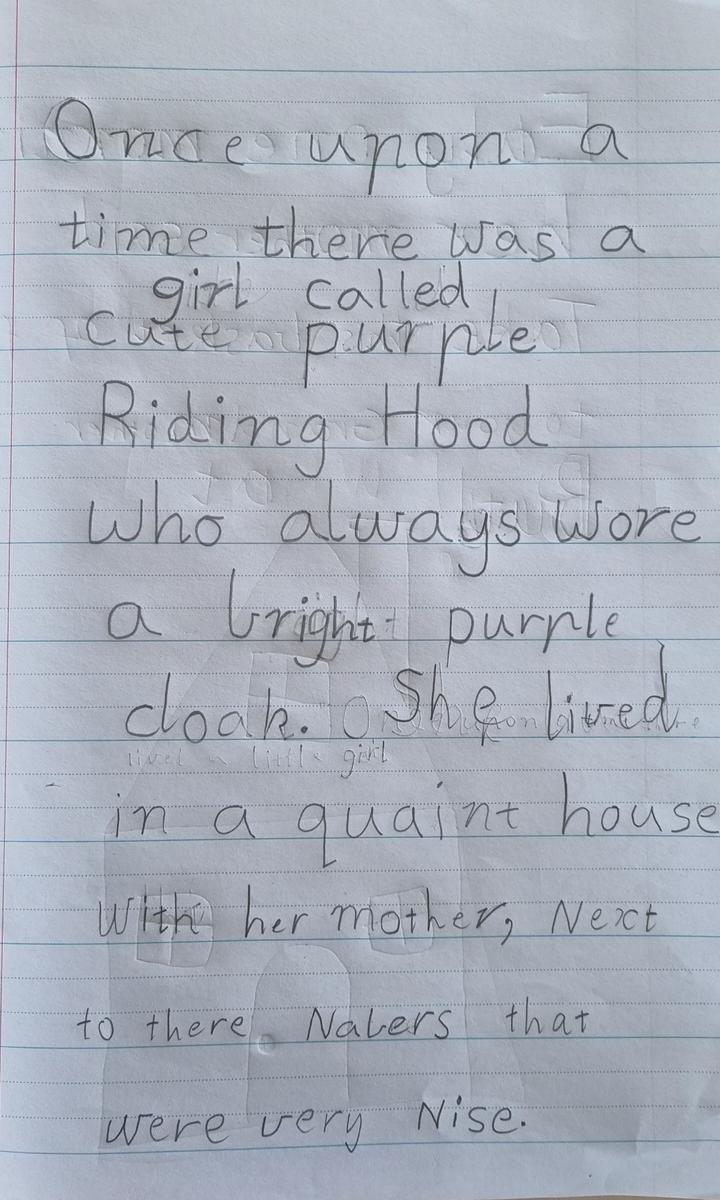 Once upon a
time there was a
girl called
cute purple
Riding Hood
who always wore
a bright purple
cloak. She lived
in a quaint house
with her mother, Next
to there Nabers that
were very Nise.